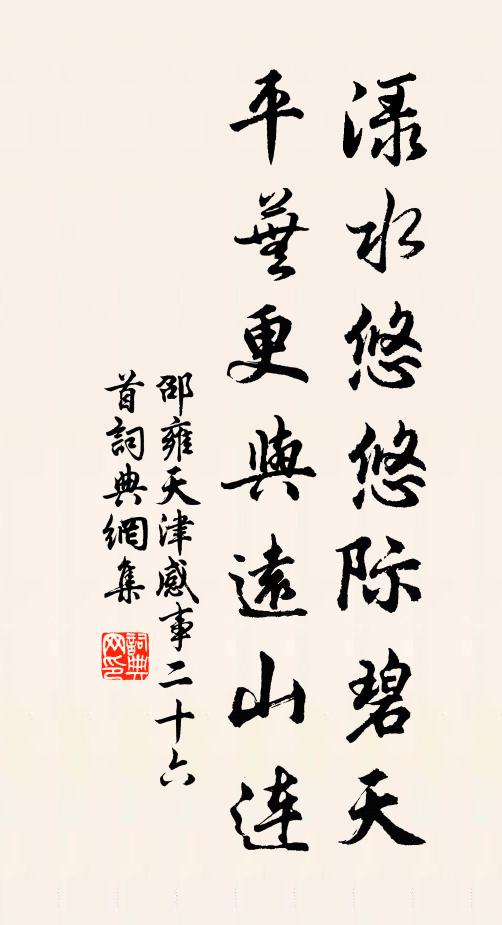 渌水悠悠际碧天
平蕪更與遠山连
邵雍天津感事二十六
首詞典網集
詞典
网印